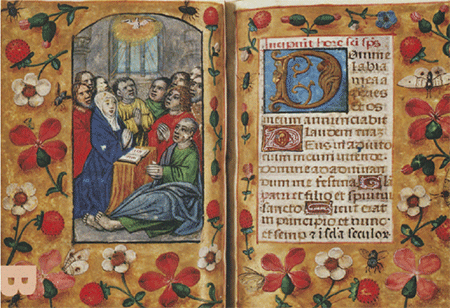 Incipiūt hore sci sps
Domine
labia
mea a
peries
et os
meum annunciabit
laudem tuā
Deus in adiuto
meum intende
Domine ad adiuuan
dum me festina
patri et filio et spiritui
sancto Sicut erat
in principio et nunc
et seculor
B